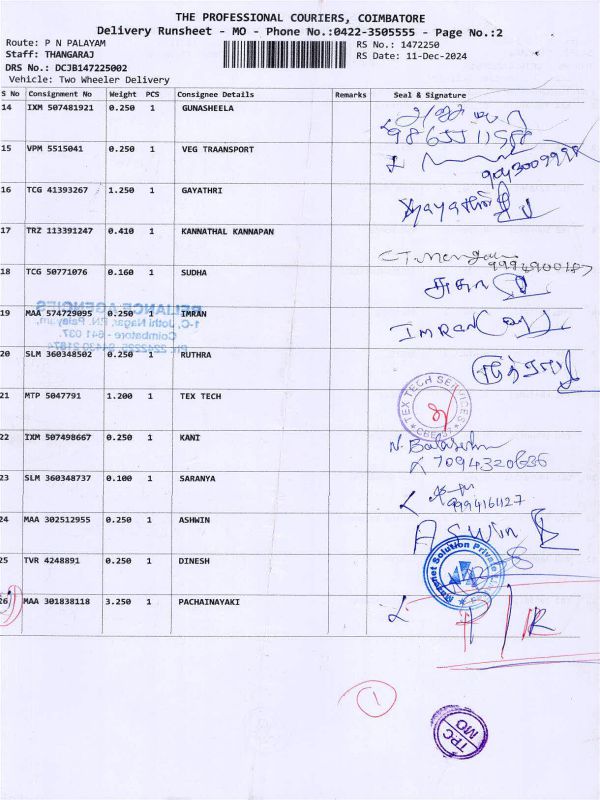 THE PROFESSIONAL COURIERS, COIMBATORE
Delivery Runsheet - MO - Phone No.:0422-3505555 - Page No.:2
Route: P N PALAYAM
RS No.: 1472250
Staff: THANGARAJ
RS Date: 11-Dec-2024
DRS No.: DCJB147225002
Vehicle: Two Wheeler Delivery
S No Consignment No Weight PCS Consignee Details Remarks Seal & Signature
14 IXM 507481921 0.250 1 GUNASHEELA
15 VPM 5515041 0.250 1 VEG TRAANSPORT
16 TCG 41393267 1.250 1 GAYATHRI
17 TRZ 113391247 0.410 1 KANNATHAL KANNAPAN
18 TCG 50771076 0.160 1 SUDHA
சுதா
19 MAA 574729095 0.250 1 IMRAN
IMRAN
RELIANCE AGENCIES
1-C, Jothi Nagar, P.N. Palayam,
Coimbatore - 641 037.
20 SLM 360348502 0.250 1 RUTHRA
21 MTP 5047791 1.200 1 TEX TECH
TEX TECH SERVICES
22 IXM 507498667 0.250 1 KANI
7094320636
23 SLM 360348737 0.100 1 SARANYA
9994161127
24 MAA 302512955 0.250 1 ASHWIN
ASWIN
25 TVR 4248891 0.250 1 DINESH
26 MAA 301838118 3.250 1 PACHAINAYAKI
1
TPC
MO